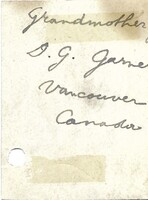 Grandmother
D. G. Garne
Vancouver
Canada